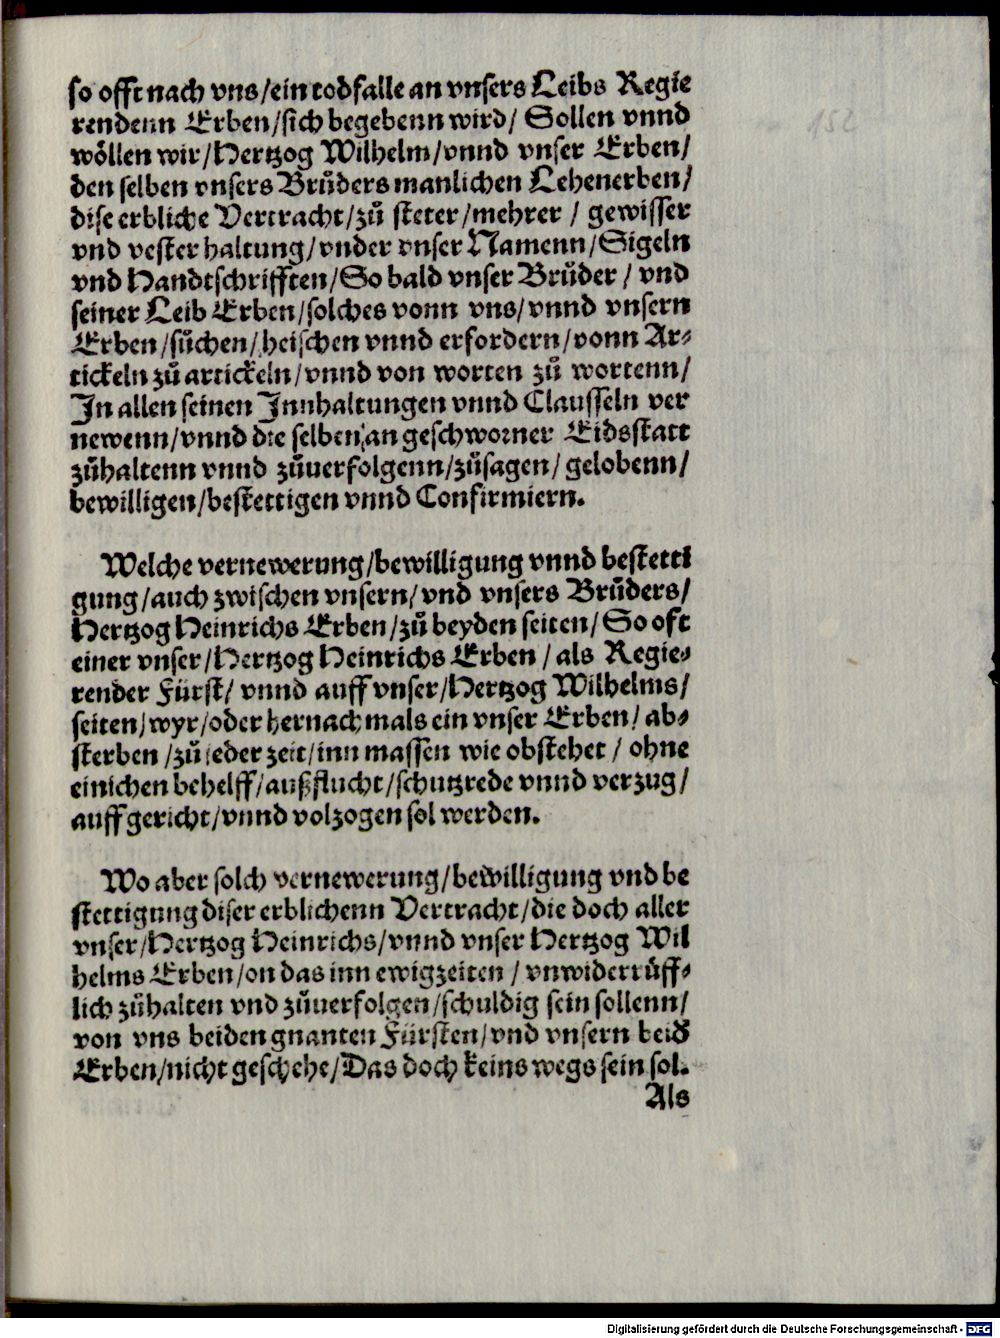 so offt nach vns/ein todfalle an vnsers Leibs Regie
rendenn Erben/sich begebenn wird/ Sollen vnnd
wöllen wir/Hertzog Wilhelm/vnnd vnser Erben/
den selben vnsers Brůders manlichen Lehenerben/
dise erbliche Vertracht/zů steter/mehrer / gewisser
vnd vester haltung/vnder vnser Namenn/Sigeln
vnd Handtschrifften/So bald vnser Brůder / vnd
seiner Leib Erben/solches vonn vns/vnnd vnsern
Erben/sůchen/heischen vnnd erfordern/vonn Ar⸗
tickeln zů artickeln/vnnd von worten zů wortenn/
In allen seinen Innhaltungen vnnd Clausseln ver
newenn/vnnd die selben/an geschworner Eidsstatt
zůhaltenn vnnd zůuerfolgenn/zůsagen/ gelobenn/
bewilligen/bestettigen vnnd Confirmiern.

Welche vernewerung/bewilligung vnnd bestetti
gung/auch zwischen vnsern/vnd vnsers Brůders/
Hertzog Heinrichs Erben/zů beyden seiten/So oft
einer vnser/Hertzog Heinrichs Erben / als Regie⸗
render Fürst/ vnnd auff vnser/Hertzog Wilhelms/
seiten/wyr/oder hernach mals ein vnser Erben/ ab⸗
sterben /zů ieder zeit/inn massen wie obstehet / ohne
einichen behelff/außflucht/schutzrede vnnd verzug/
auffgericht/vnnd volzogen sol werden.

Wo aber solch vernewerung/bewilligung vnd be
stettigung diser erblichenn Vertracht/die doch aller
vnser/Hertzog Heinrichs/vnnd vnser Hertzog Wil
helms Erben/on das inn ewigzeiten / vnwiderrůff⸗
lich zůhalten vnd zůuerfolgen/schuldig sein sollenn/
von vns beiden gnanten Fürsten/vnd vnsern beid̛
Erben/nicht geschehe/Das doch keins wegs sein sol.
Als
Digitalisierung gefördert durch die Deutsche Forschungsgemeinschaft - DFG